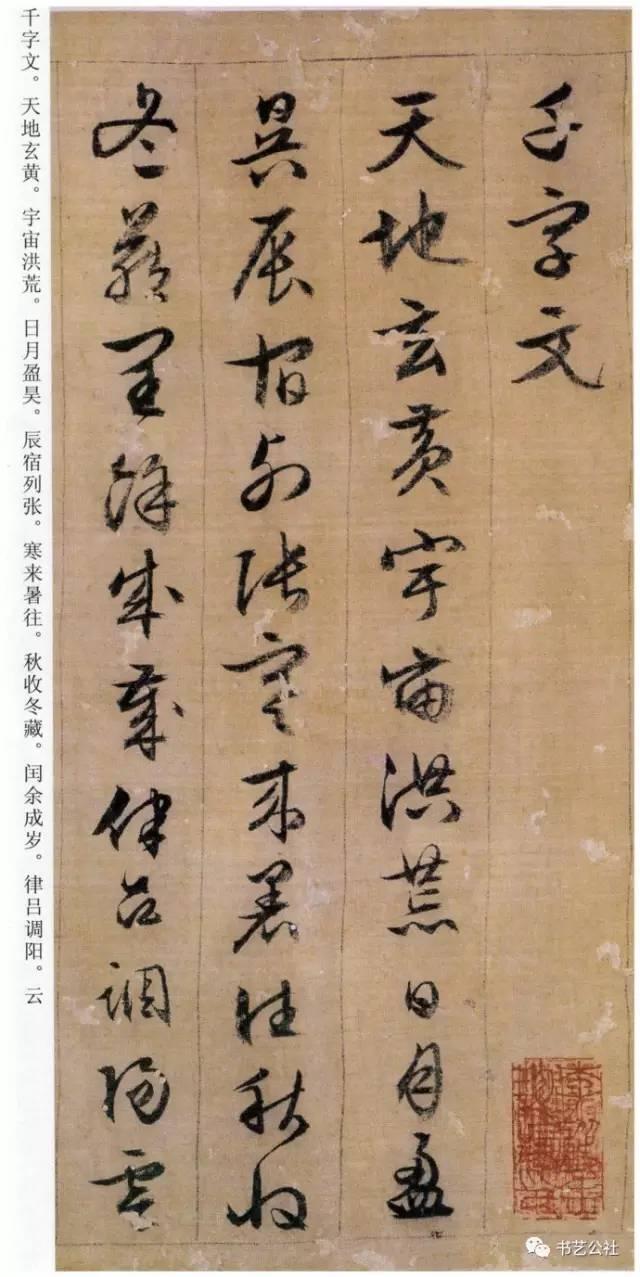 千字文
天地玄黄宇宙洪荒日月盈
昃辰宿列張寒来暑往秋收
冬藏閏餘成歲律吕調陽雲
千字文。天地玄黄。宇宙洪荒。日月盈昊。辰宿列张。寒来暑往。秋收冬藏。闰余成岁。律吕调阳。云
书艺公社